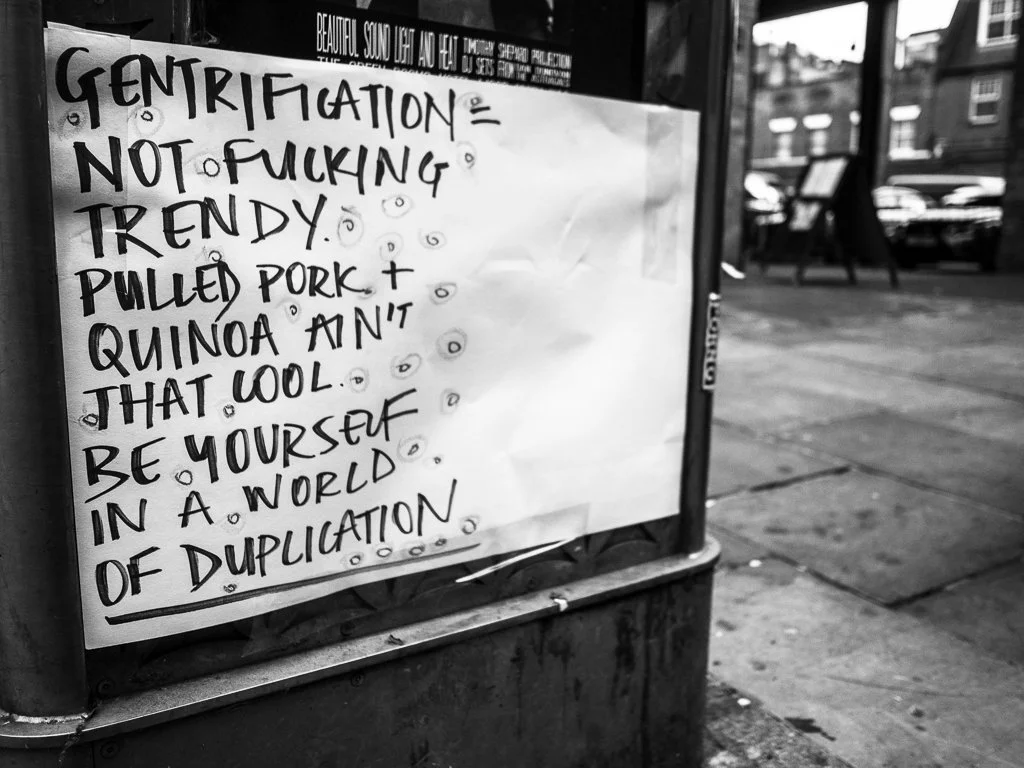 BEAUTIFUL SOUND LIGHT AND HEAT TIMOTHY SHEPARD PROJECTION
DJ SETS FROM
GENTRIFICATION =
NOT FUCKING
TRENDY.
PULLED PORK +
QUINOA AIN'T
THAT COOL.
BE YOURSELF
IN A WORLD
OF DUPLICATION